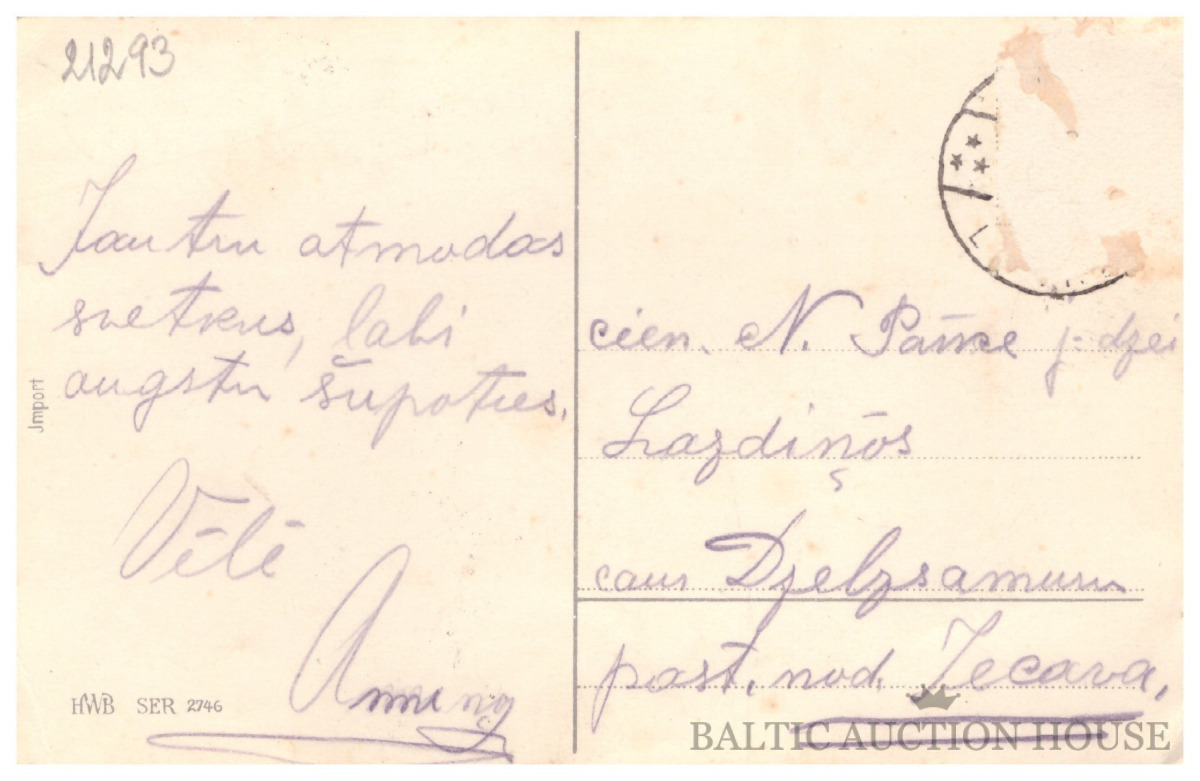 21293
Jautru atmodas
svetkus, labi
augstu šupoties.
Vēlē
Jmport
HWB SER 2746
cien. N. j-dzei
Lazdiņōs
caur Dzelzsamuru
past. nod. Jecava,
BALTIC AUCTION HOUSE